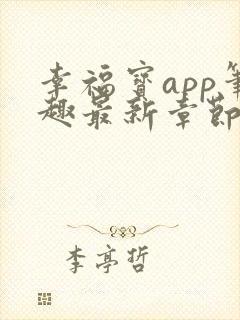 幸福宝app笔
趣最新章节
李亭哲